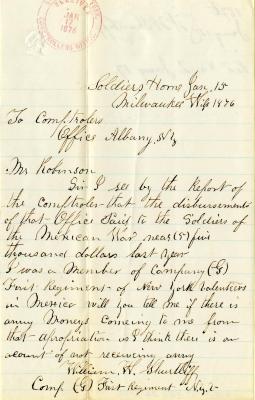 JAN
1876
Soldiers Home Jan, 15
Milwaukee Wis 1876
To Comptrolers
Office Albany, N,y
Mr Robinson
Sir I see by the Report of
the Comptroler that the disbursements
of that Office Paid to the Soldiers of
the Mexican War near (5) five
thousand dollars last year
I was a Member of Company (G)
First Regiment of New York Volenteers
in Mexico will you tell me if there is
anny Moneys comeing to me from
that apropriation as I think there is on
acount of not receiving anny
William W. Shurtleff
Comp (G) First Regiment